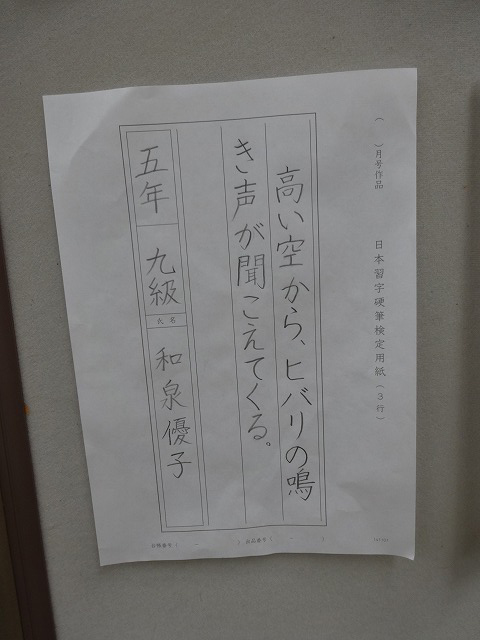 （　　）月号作品
日本習字硬筆検定用紙（３行）
高い空から、ヒバリの鳴
き声が聞こえてくる。
五年 九級 氏名 和泉優子